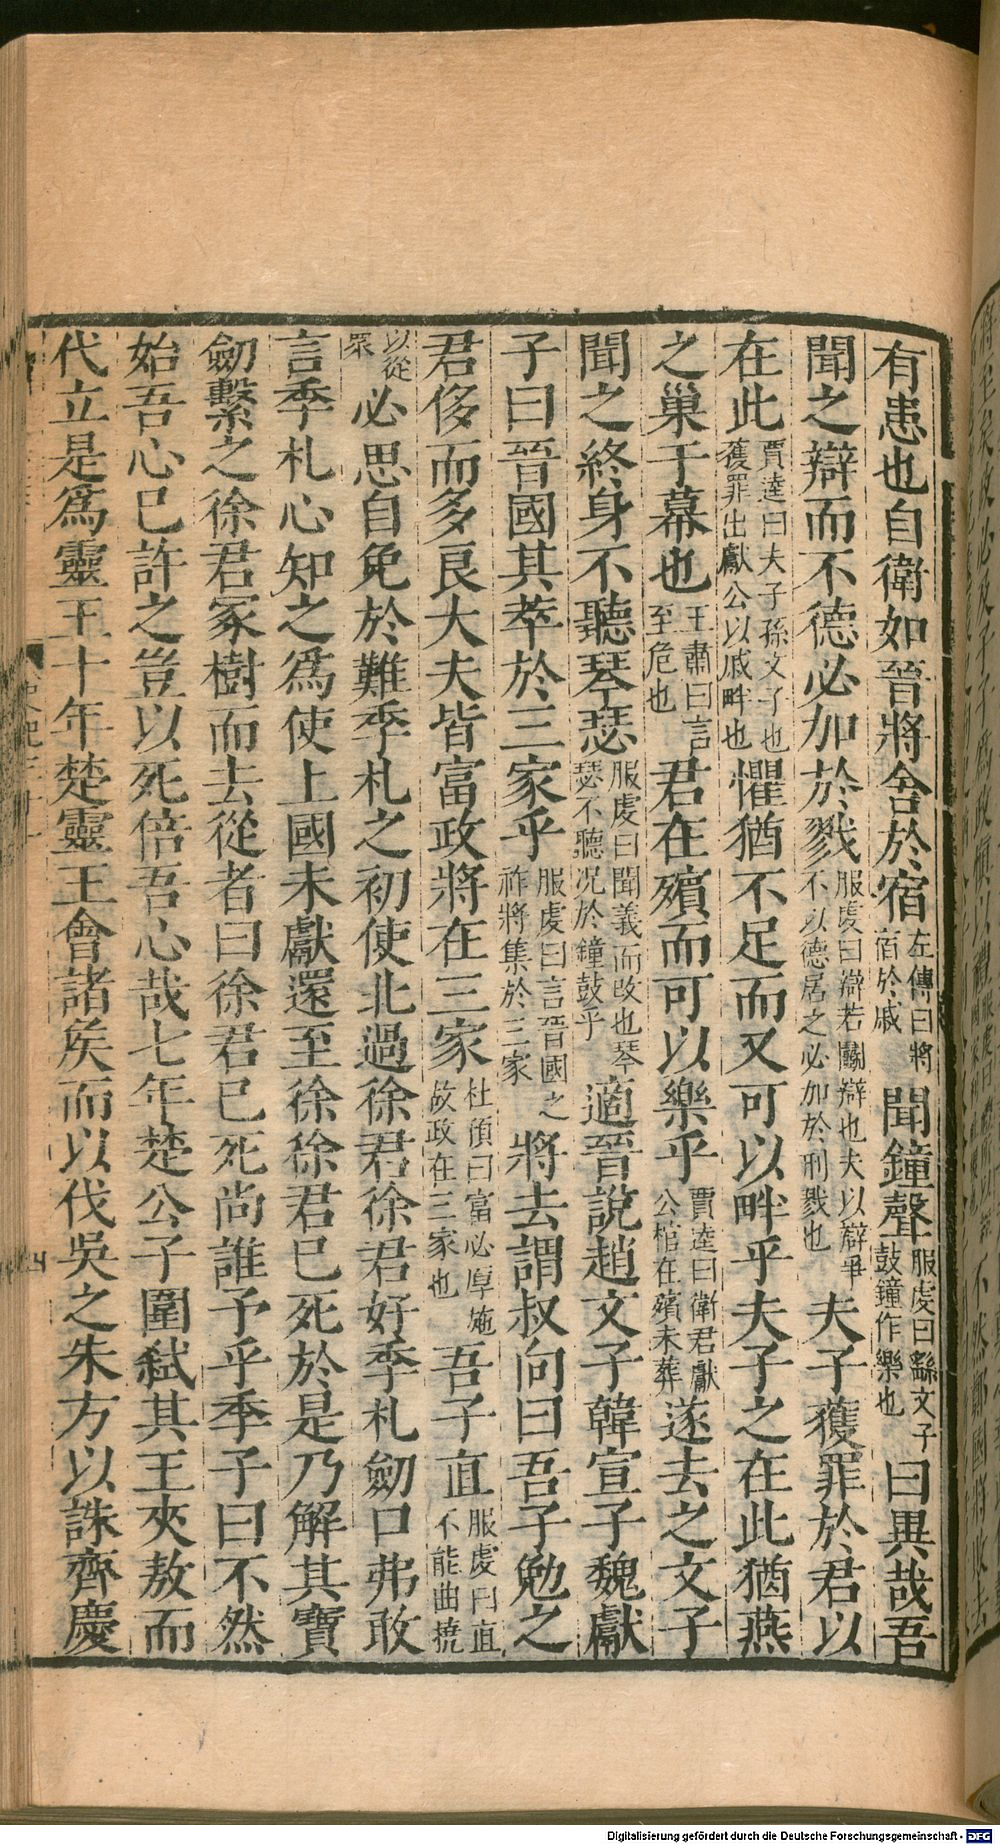 有患也自衛如晉將舍於宿左傳曰將宿於戚聞鐘聲服虔曰孫文子鼓鐘作樂也曰異哉吾
聞之辯而不德必加於戮服虔曰辯若鬭辯也夫以辯爭不以德居之必加於刑戮也夫子獲罪於君以
在此賈逵曰夫子孫文子也獲罪出獻公以戚畔也懼猶不足而又可以畔乎夫子之在此猶燕
之巢于幕也王肅曰言至危也君在殯而可以樂乎賈逵曰衛君獻公棺在殯未葬遂去之文子
聞之終身不聽琴瑟服虔曰聞義而改也琴瑟不聽况於鐘鼓乎適晉說趙文子韓宣子魏獻
子曰晉國其萃於三家乎服虔曰言晉國之祚將集於三家將去謂叔向曰吾子勉之
君侈而多良大夫皆富政將在三家杜預曰富必厚施故政在三家也吾子直服虔曰直不能曲撓
以從眾必思自免於難季札之初使北過徐君徐君好季札劒口弗敢
言季札心知之爲使上國未獻還至徐徐君已死於是乃解其寶
劒繫之徐君冢樹而去從者曰徐君已死尚誰予乎季子曰不然
始吾心已許之豈以死倍吾心哉七年楚公子圍弒其王夾敖而
代立是爲靈王十年楚靈王會諸矦而以伐吳之朱方以誅齊慶
史記三十一
四
Digitalisierung gefördert durch die Deutsche Forschungsgemeinschaft - DFG